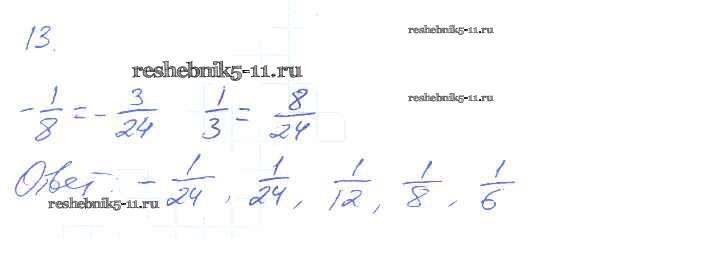 13.
reshebnik5-11.ru
reshebnik5-11.ru
-1/8 = -3/24 1/3 = 8/24
reshebnik5-11.ru
Ответ: -1/24, 1/24, 1/12, 1/8, 1/6
reshebnik5-11.ru